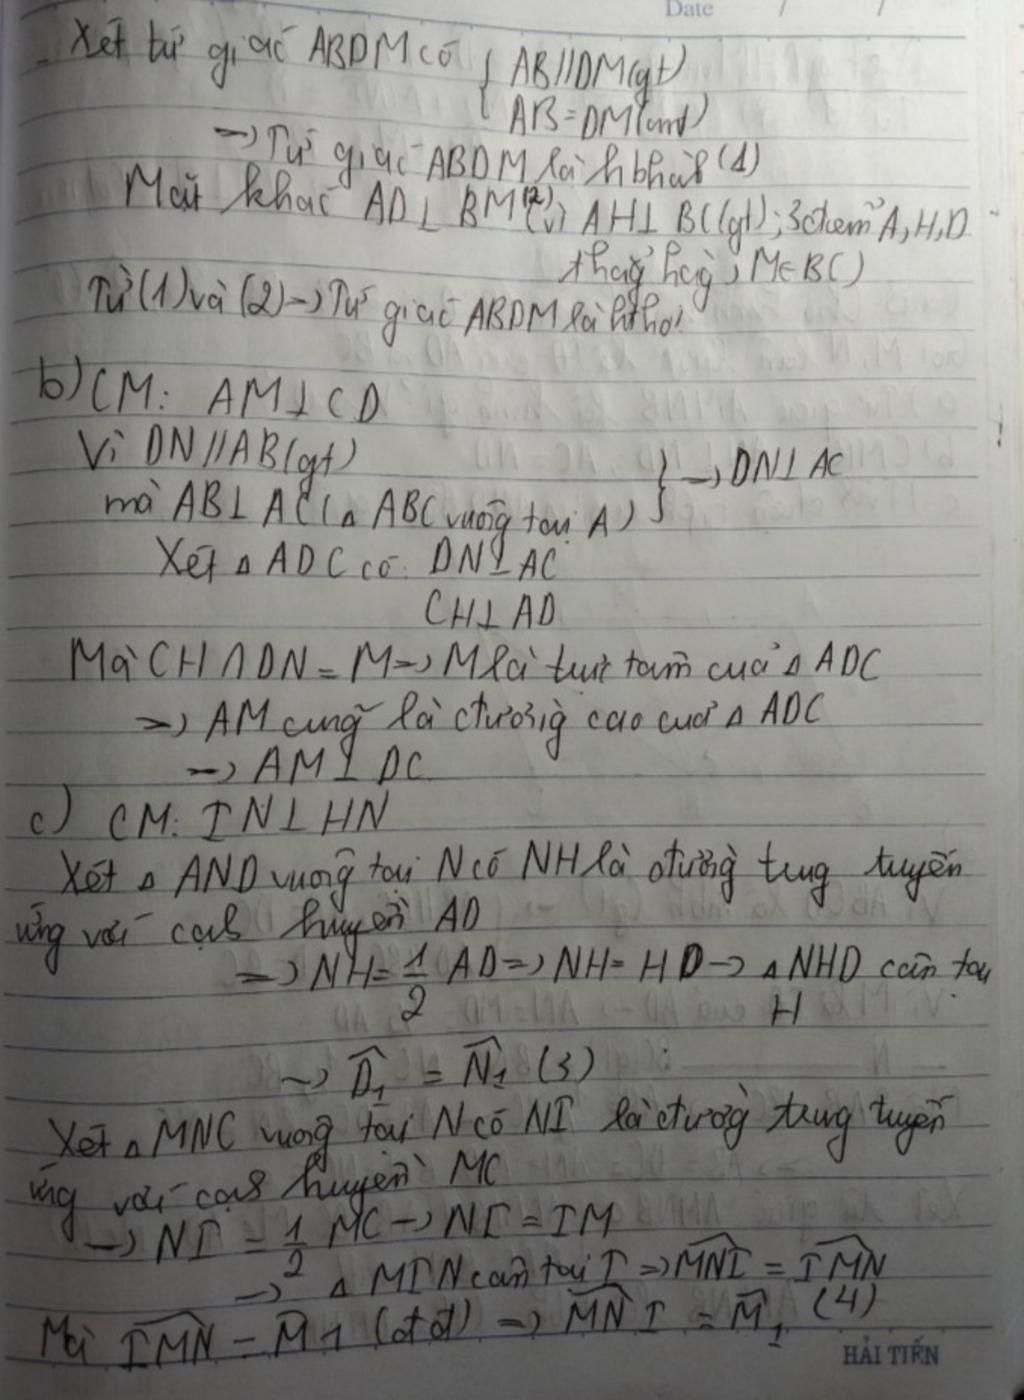 Date / /
- Xét tứ giác ABDM có { AB//DM(gt)
AB=DM(cmt)
→ Tứ giác ABDM là hbhàh (1)
Mặt khác AD⊥BM(2)(vì AH⊥BC(gt); 3 điểm A,H,D
thẳg hàg, M∈BC)
Từ (1) và (2) → Tứ giác ABDM là hthoi
b) CM: AM⊥CD
Vì DN//AB(gt)
mà AB⊥AC(△ABC vuông tại A) } → DN⊥AC
Xét △ADC có: DN⊥AC
CH⊥AD
Mà CH∩DN=M → M là trực tâm của △ADC
⇒ AM cũng là đường cao của △ADC
→ AM⊥DC
c) CM: IN⊥HN
Xét △AND vuông tại N có NH là đường trug tuyến
ứng với cạh huyền AD
⇒ NH=1/2 AD ⇒ NH=HD → △NHD cân tại
H
→ D̂1 = N̂1 (3)
Xét △MNC vuog tại N có NI là đườg trug tuyến
ứng với cạh huyền MC
→ NI = 1/2 MC → NI = IM
→ △MIN cân tại I ⇒ M̂NI = ÎMN
Mà ÎMN = M̂1 (đđ) ⇒ M̂NI = M̂1 (4)
HẢI TIẾN